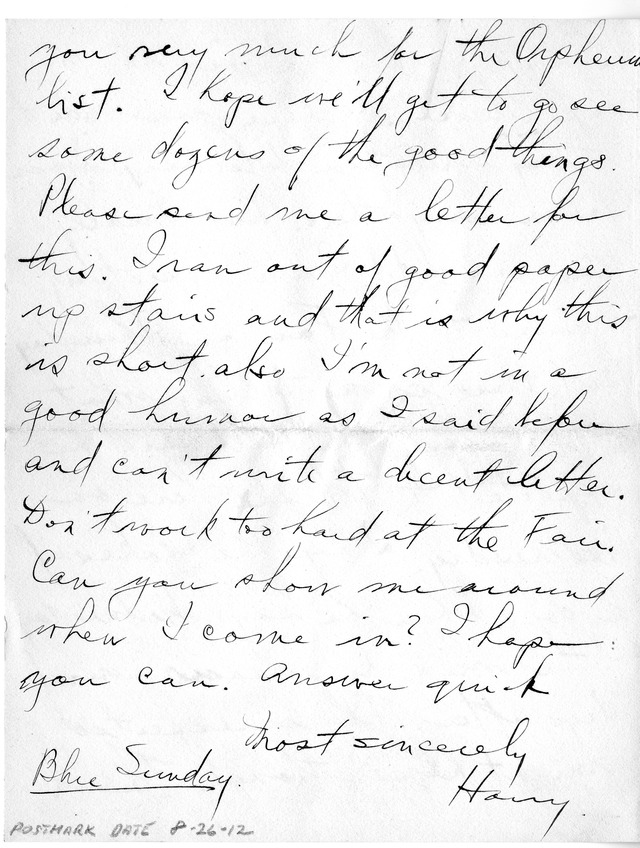 you very much for the Orpheum
list. I hope we'll get to go see
some dozens of the good things.
Please send me a letter for
this. I ran out of good paper
up stairs and that is why this
is short. also I'm not in a
good humor as I said before
and can't write a decent letter.
Don't work too hard at the Fair.
Can you show me around
when I come in? I hope
you can. Answer quick
Most sincerely
Harry.
Blue Sunday.
POSTMARK DATE 8-26-12